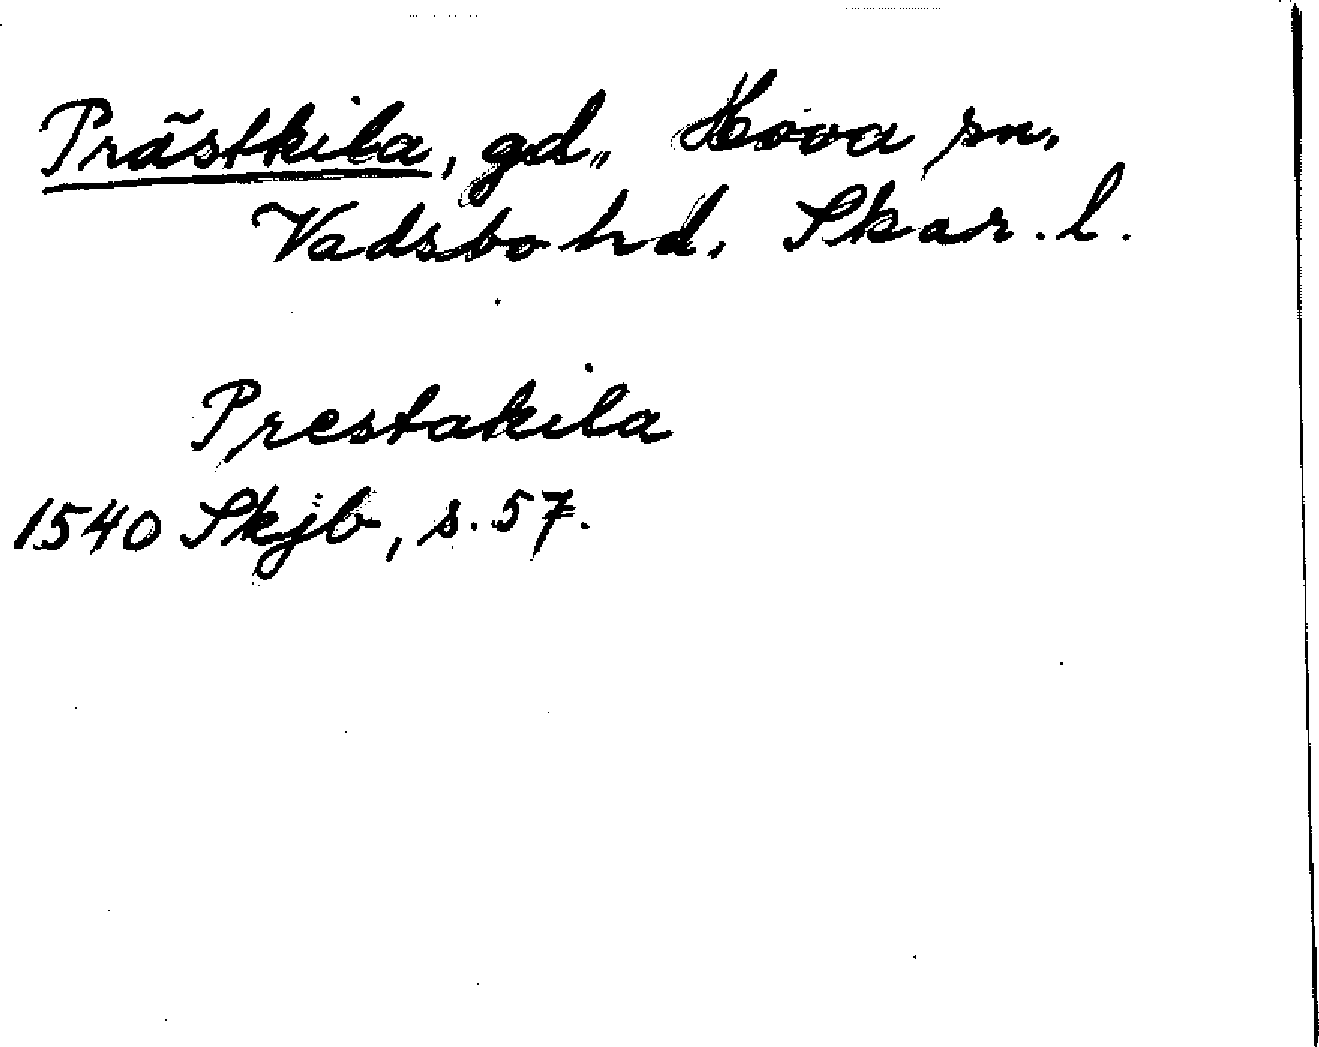 Prästkila, gd., Hova sn.
Vadsbo hd. Skar. l.
Prestakila
1540 Skjb, s. 57.